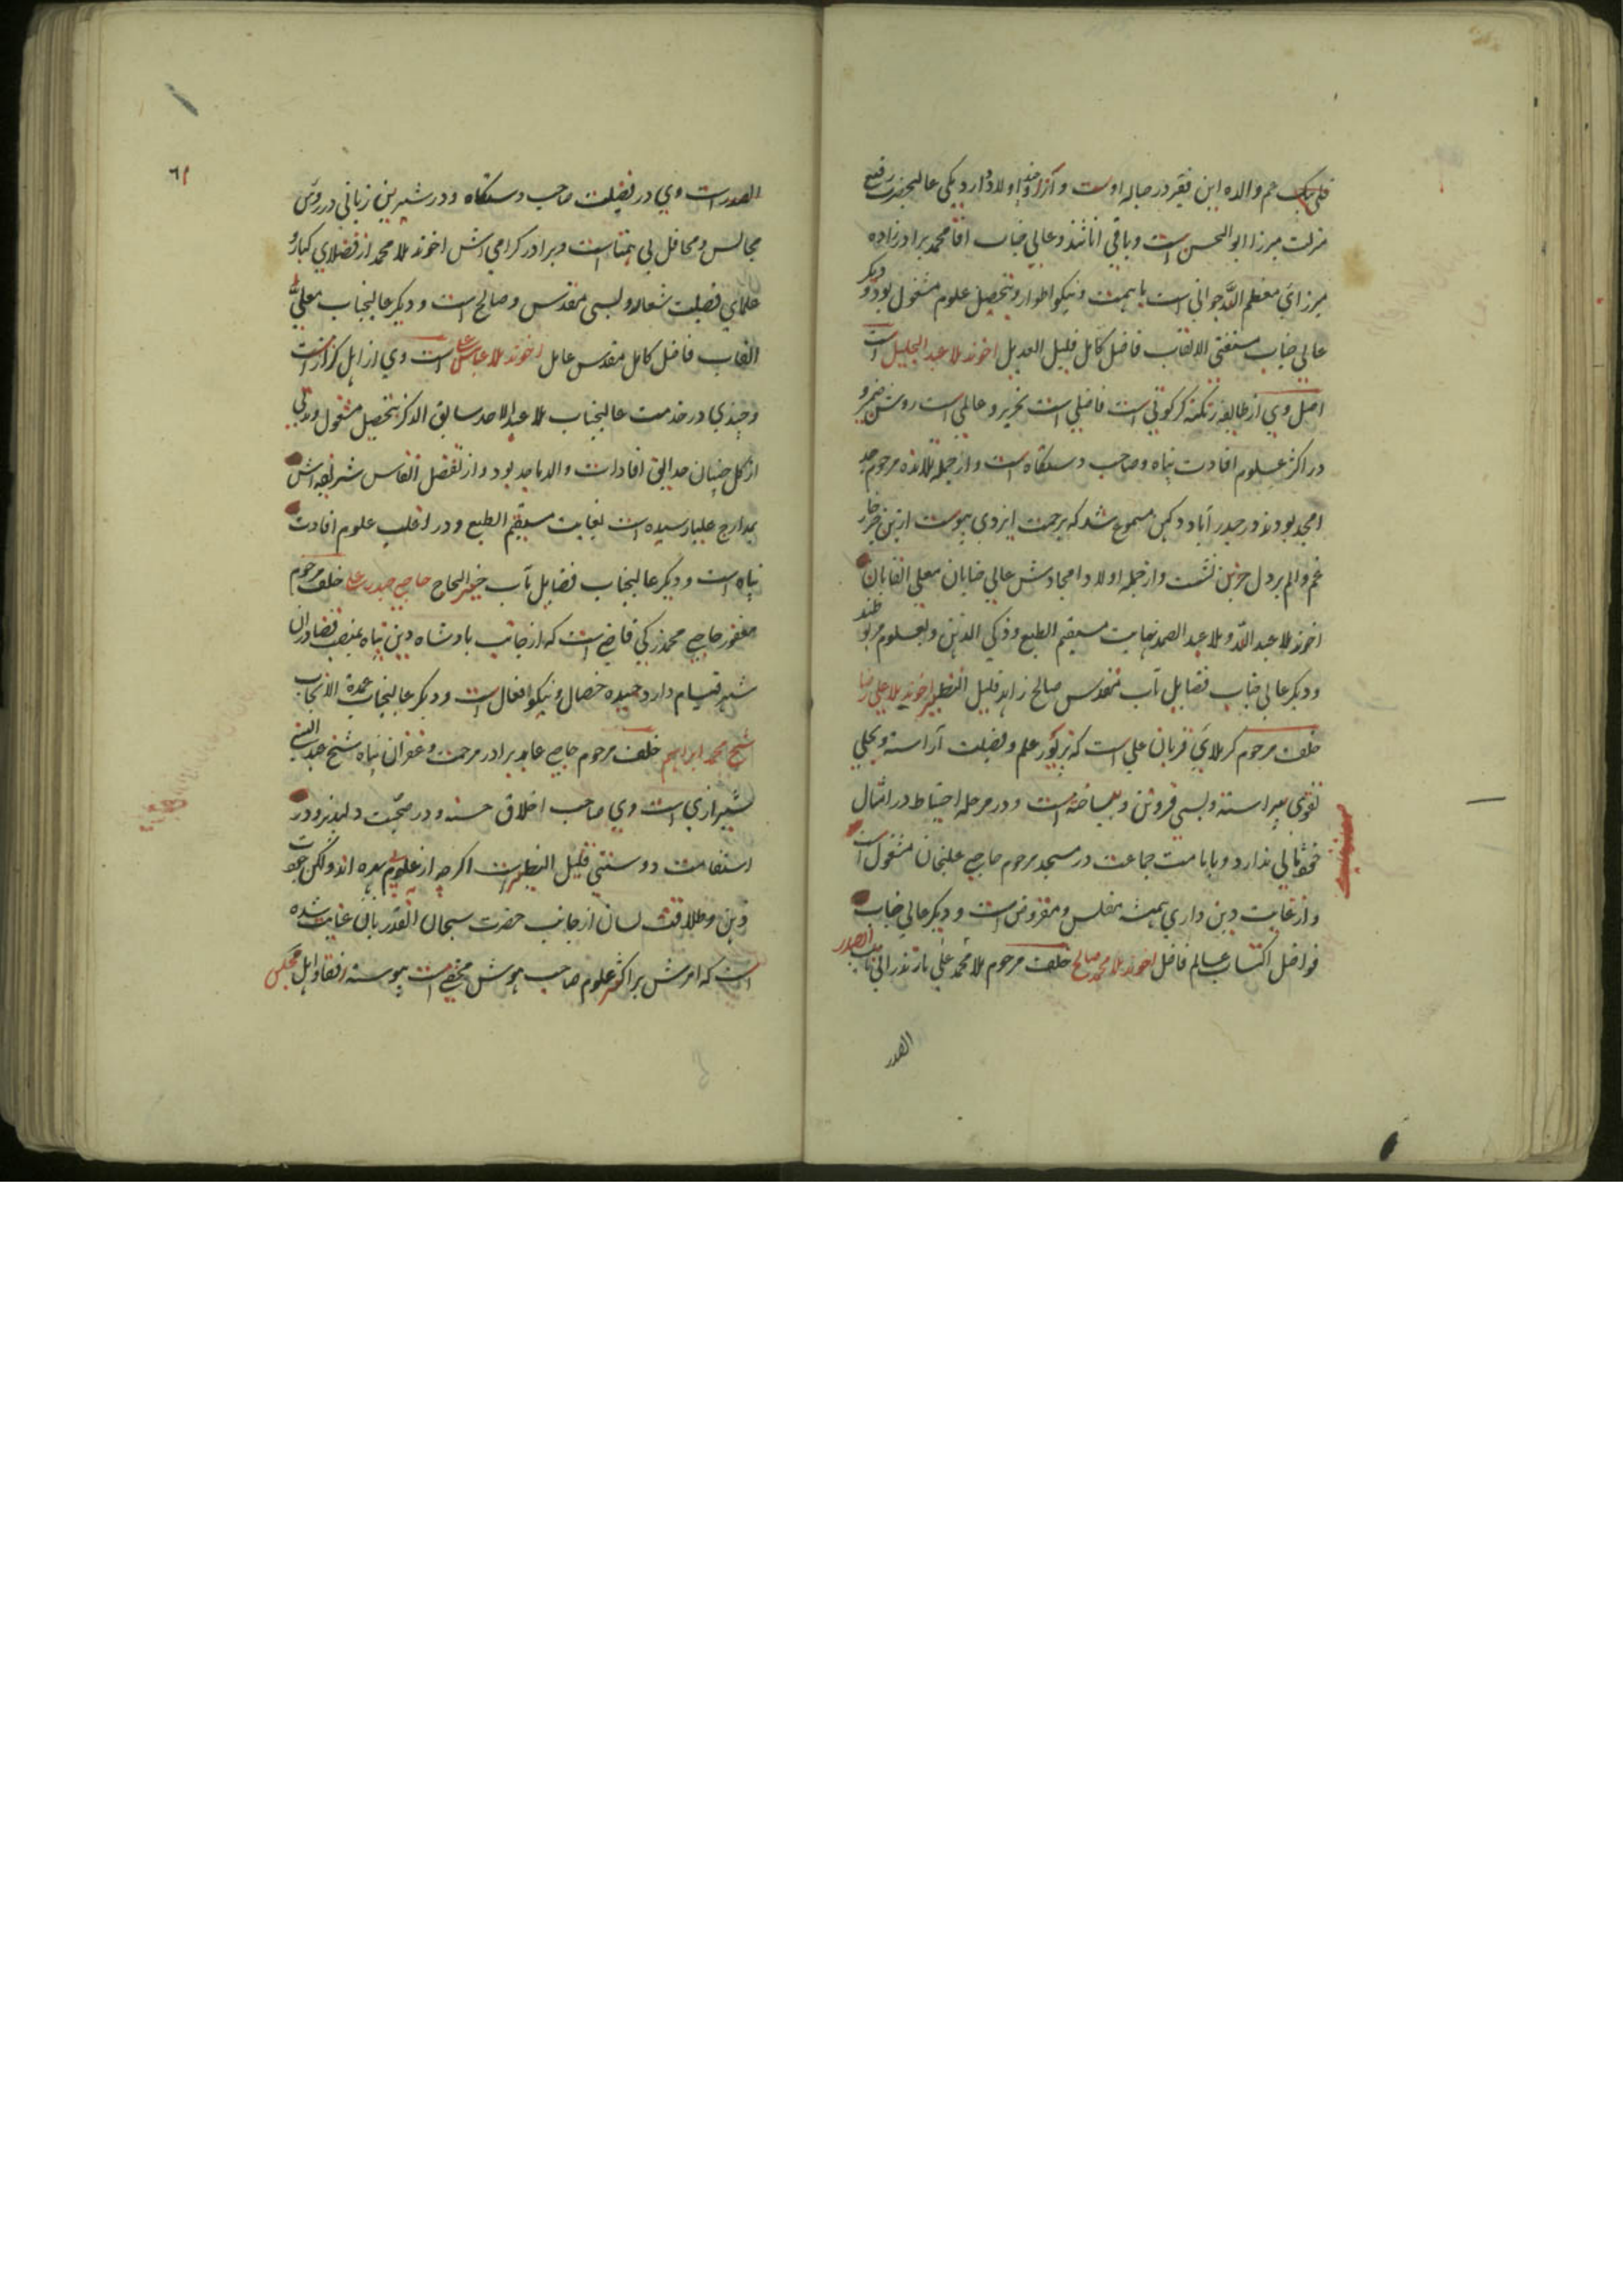 قلی بیک عم والده این فقیر در حباله اوست و آنرا اولاد دارد یکی عالیحضرت رفیع
منزلت میرزا ابوالحسن است و باقی اناثند و عالی جناب اقا محمد برادرزاده
میرزای معظم الله جوانی است با همت و نیکو اطوار و بتحصیل علوم مشغول بود و دیکر
عالی جناب مستغنی الالقاب فاضل کامل قلیل العدیل اخوند ملا عبدالجلیل است
اصل وی از طایفه زنکنه کرکوتی است فاضلی است نحریر و عالمی است روشن ضمیر و
در اکثر علوم افادت پناه و صاحب دستکاه است و از جمله تلامذه مرحوم جد
امجد بودند در حیدرآباد دکهن مسموع شد که برحمت ایزدی پیوست ازین خبر خار
غم و الم بر دل حزین نشست و از جمله اولاد امجادش عالی جنابان معلی القابان
اخوند ملا عبدالله و ملا عبدالصمد نهایت مستقیم الطبع و ذکی الذهن و بعلوم مربوطند
و دیکر عالی جناب فضایل مآب مقدس صالح زاهد قلیل النظیر اخوند ملا علی رضا
خلف مرحوم کربلائی قربان علی است که بزیور علم و فضیلت آراسته و بحلی
تقوی پیراسته و بسی فروتن و بیساخته است و در مرحله احتیاط در امثال
خود ثانی ندارد و بامامت جماعت در مسجد مرحوم حاجی علیخان مشغول است
و از غایت دین داری همیشه مفلس و مقروض است و دیکر عالی جناب
فواضل اکتساب عالم فاضل اخوند ملا محمد صالح خلف مرحوم ملا محمد علی مازندرانی نایب الصدر
الصدر
٦١
الصدر است وی در فضیلت صاحب دستکاه و در شیرین زبانی در روش
مجالس و محافل بی همتا است و برادر کرامی اش اخوند ملا محمد از فضلای کبار و
علمای فضیلت شعار و بسی مقدس و صالح است و دیکر عالیجناب معلی
القاب فاضل کامل مقدس عامل اخوند ملا عباس علی است وی از اهل کزاز است
و چندی در خدمت عالیجناب ملا عبدالاحد سابق الذکر بتحصیل مشغول و مدتی
از کل چینان حدایق افادات والد ماجد بود و از تفضل انفاس شریفه اش
بمدارج علیا رسیده است بغایت مستقیم الطبع و در اغلب علوم افادت
پناه است و دیکر عالیجناب فضایل مآب خیر الحاج حاجی حیدر علی خلف مرحوم
مغفور حاجی محمد زکی قاضی است که از جانب بادشاه دین پناه بمنصب قضا در ان
شهر قیام دارد حمیده خصال و نیکو افعال است و دیکر عالیجناب عمدة الانجاب
شیخ محمد ابراهیم خلف مرحوم حاجی عابد برادر مرحمت و غفران پناه شیخ عبدالنبی
شیرازی است وی صاحب اخلاق حسنه و در صحبت دلپذیر و در
استقامت دوستی قلیل النظیر است اکرچه از علوم بهره اند ولکن جودت
ذهن و طلاقت لسان از جانب حضرت سبحان انقدر بآن عنایت شده
است که امرش بر اکثر علوم صاحب هوش مخفی است پیوسته رفقا و اهل مجلس